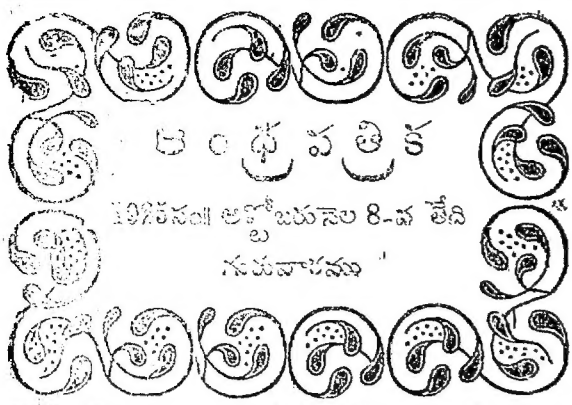 ఆంధ్రపత్రిక
1925సం॥ అక్టోబరునెల 8-వ తేది
గురువారము